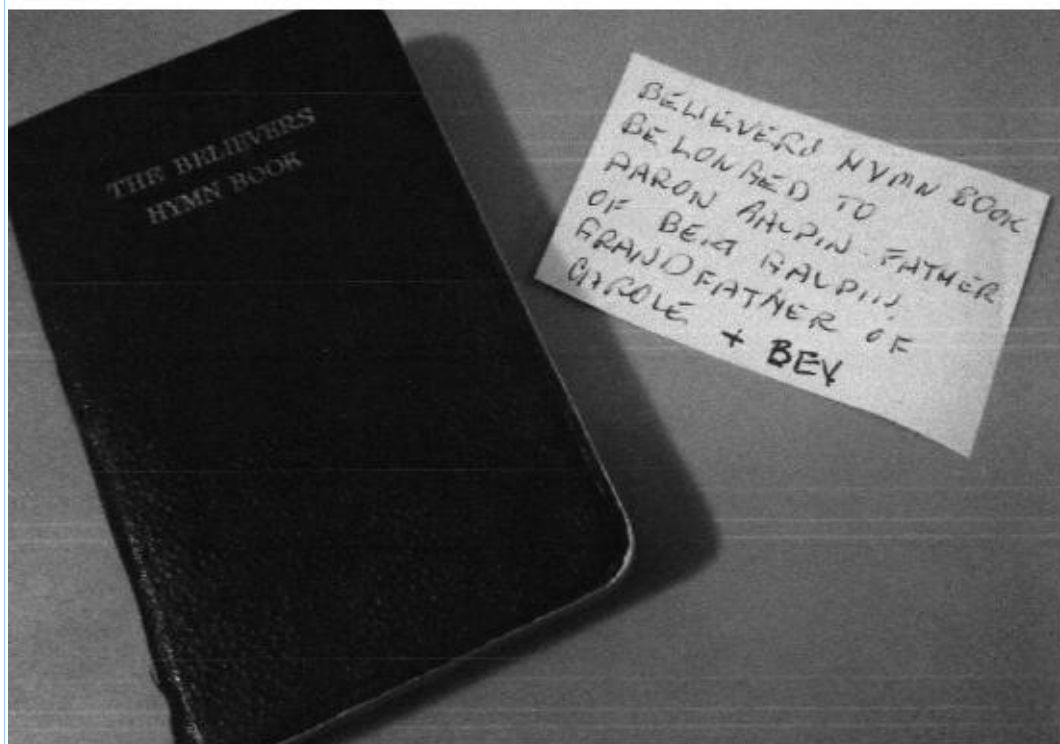 THE BELIEVERS
HYMN BOOK
BELIEVERS HYMN BOOK
BELONGED TO
AARON GALPIN - FATHER
OF BERT GALPIN.
GRANDFATHER OF
CAROLE + BEV